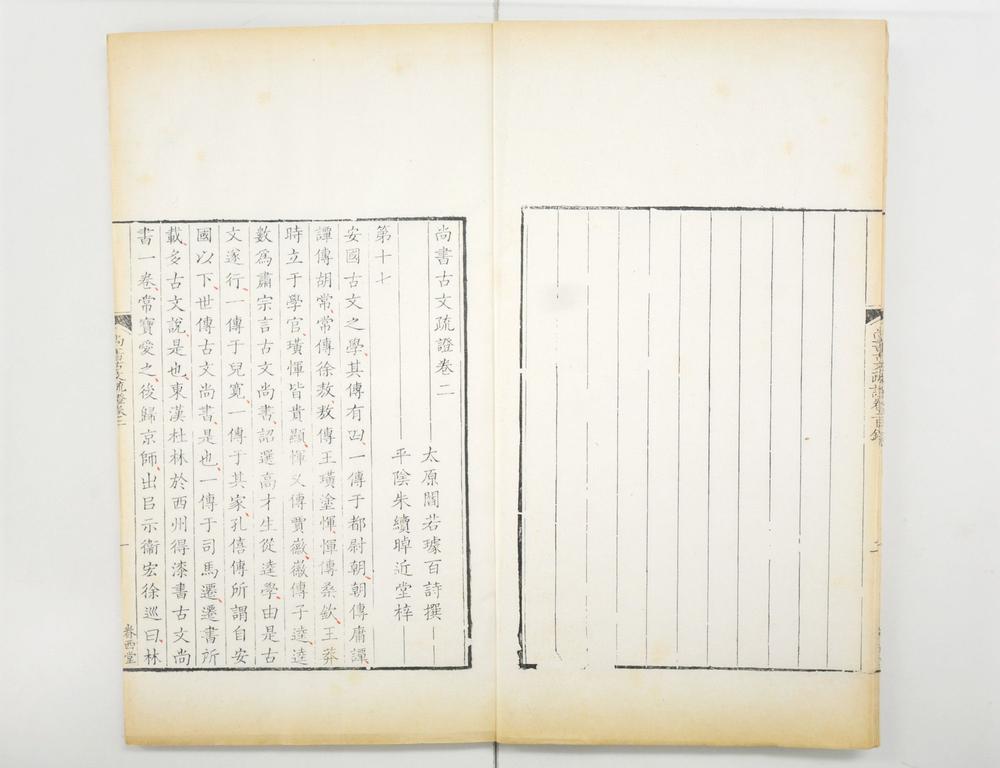 尚書古文疏證卷二
太原閻若璩百詩撰
平陰朱續晫近堂梓
第十七
安國古文之學其傳有四一傳于都尉朝朝傳庸譚
譚傳胡常常傳徐敖敖傳王璜塗惲惲傳桑欽王莽
時立于學官璜惲皆貴顯惲又傳賈徽徽傳子逵逵
數為肅宗言古文尚書詔選高才生從逵學由是古
文遂行一傳于兒寬一傳于其家孔僖傳所謂自安
國以下世傳古文尚書是也一傳于司馬遷遷書所
載多古文說是也東漢杜林於西州得漆書古文尚
書一卷常寶愛之後歸京師出㠯示衞宏徐巡曰林
尚書古文疏證卷二
一
眷西堂